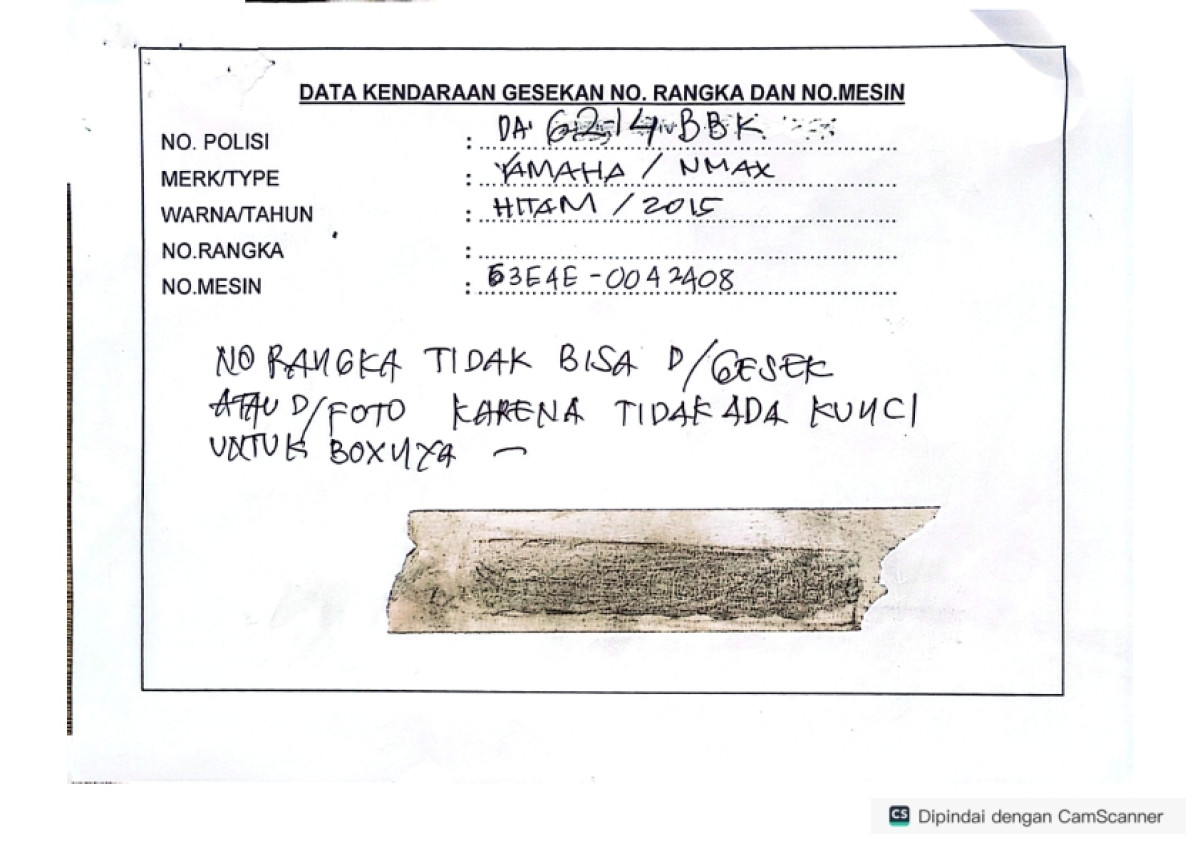 DATA KENDARAAN GESEKAN NO. RANGKA DAN NO.MESIN
NO. POLISI : DA 6214 BBK
MERK/TYPE : YAMAHA / NMAX
WARNA/TAHUN : HITAM / 2015
NO.RANGKA :
NO.MESIN : G3E4E-0042408
NO RANGKA TIDAK BISA D/GESEK
ATAU D/FOTO KARENA TIDAK ADA KUNCI
UNTUK BOXNYA
CS Dipindai dengan CamScanner